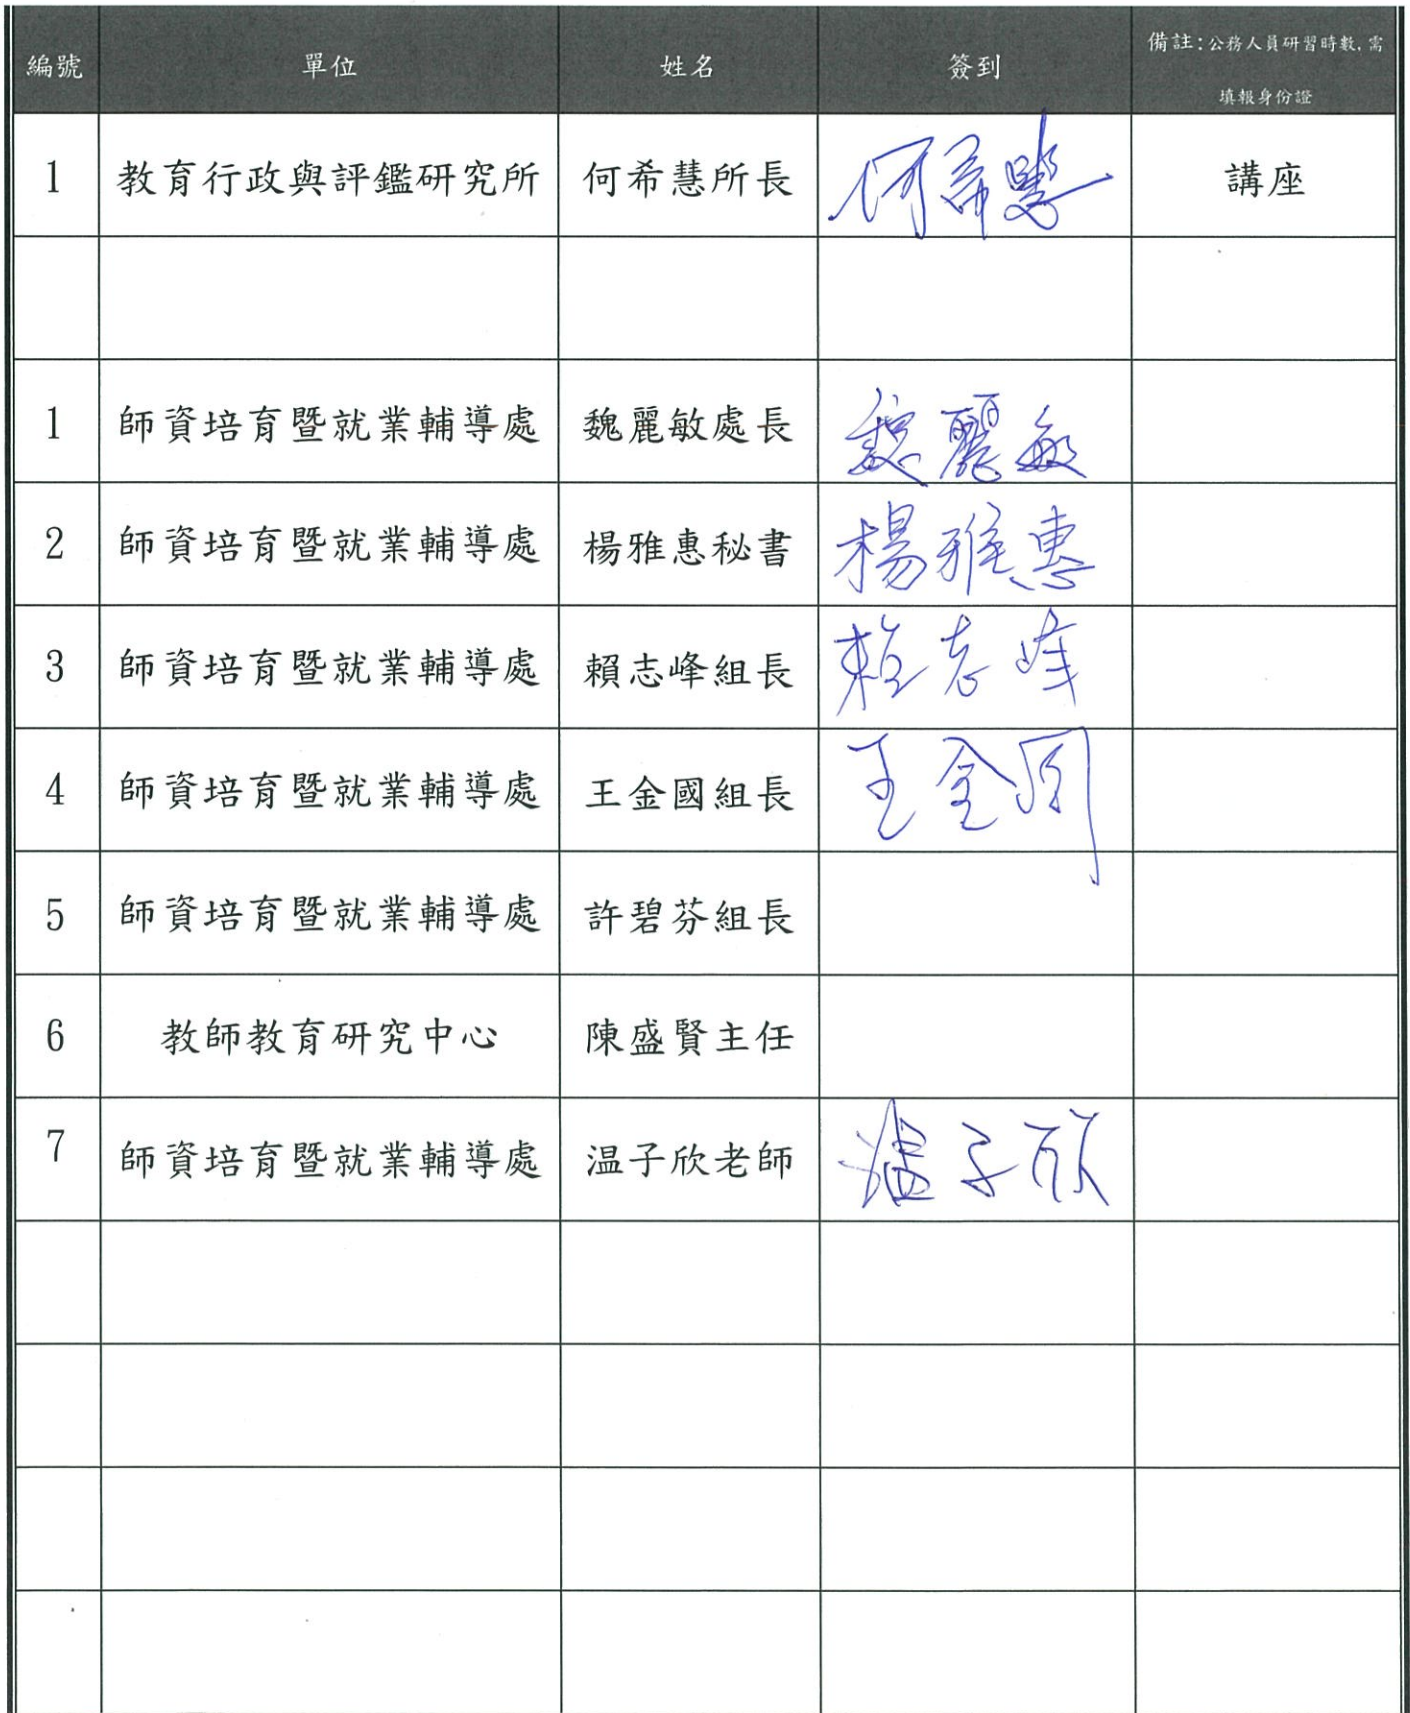 編號 單位 姓名 簽到 備註:公務人員研習時數,需
填報身份證
1 教育行政與評鑑研究所 何希慧所長 何希慧 講座
1 師資培育暨就業輔導處 魏麗敏處長 魏麗敏
2 師資培育暨就業輔導處 楊雅惠秘書 楊雅惠
3 師資培育暨就業輔導處 賴志峰組長 賴志峰
4 師資培育暨就業輔導處 王金國組長 王金国
5 師資培育暨就業輔導處 許碧芬組長
6 教師教育研究中心 陳盛賢主任
7 師資培育暨就業輔導處 温子欣老師 溫子欣